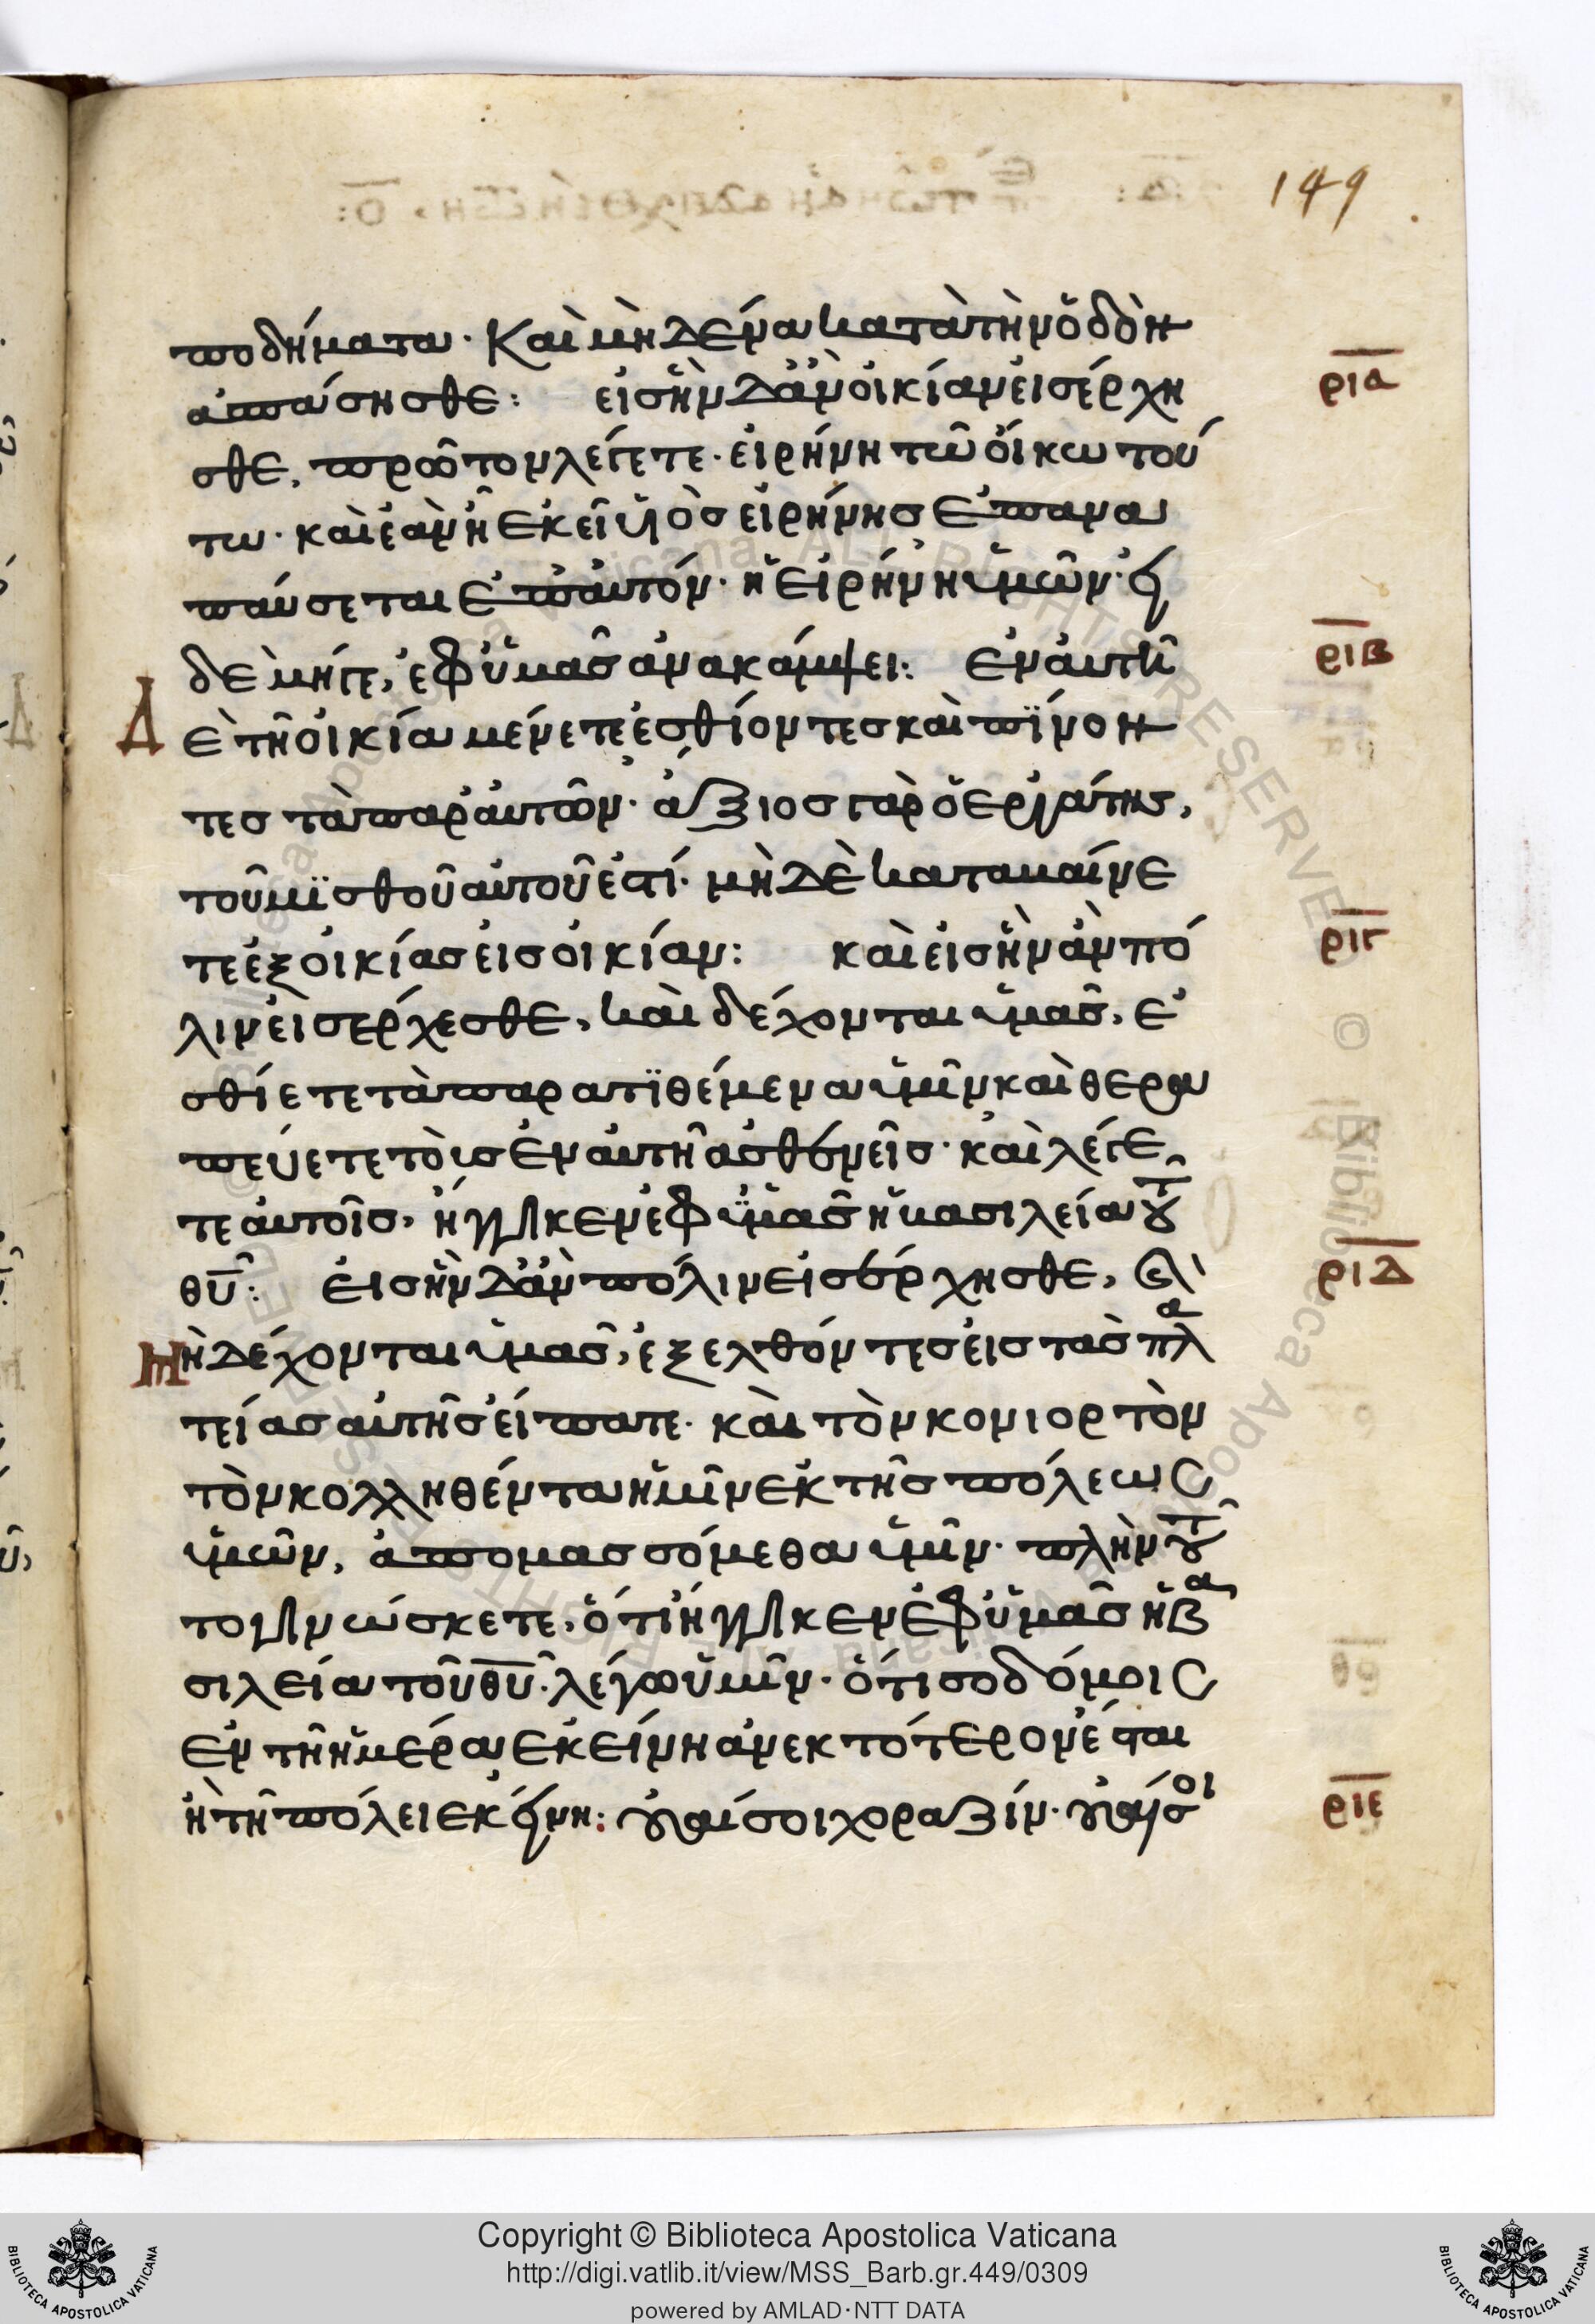 149
ποδήματα· Καὶ μηδένα κατὰ τὴν ὁδὸν
ρια
ἀσπάσησθε: εἰς ἣν δἂν οἰκίαν εἰσέρχη
σθε, πρῶτον λέγετε· εἰρήνη τῶ οἴκω τού
τω· καὶ ἐὰν ἦ ἐκεῖ υἱὸς εἰρήνης ἐπανα
παύσεται ἐπ' αὐτόν· ἡ εἰρήνη ὑμῶν· εἰ
δὲ μήγε, ἐφ ὑμᾶς ἀνακάμψει: ἐν αὐτῆ
ριβ
Δ ὲ τῆ οἰκία μένετε ἐσθίοντες καὶ πϊνον
τες τὰ παρ' αὐτῶν· ἄξιος γὰρ ὁ ἐργάτης,
τοῦ μϊσθοῦ αὐτοῦ ἐστί· μὴ δὲ καταβαίνε
τε ἐξ οἰκίας εἰς οἰκίαν: καὶ εἰς ἣν ἂν πό
ριγ
λιν εἰσερχεσθε, καὶ δέχονται ὑμᾶς, ἐ
σθίετε τὰ παρατϊθέμενα ὑμῖν καὶ θερα
πεύετε τοὺς ἐν αὐτῆ ἀσθενεῖς· καὶ λέγε
τε αὐτοῖς, ἤγγικεν ἐφ ὑμᾶς ἡ βασιλεία τοῦ
θυ: εἰς ἣν δἂν πόλιν εἰσέρχησθε, καὶ
ριδ
Μ ὴ δέχονται ὑμᾶς, ἐξελθόντες εἰς τὰς πλα
τείας αὐτῆς εἴπατε· καὶ τὸν κονιορτὸν
τὸν κολληθέντα ἡμῖν ἐκ τῆς πόλεως
ὑμῶν, ἀπομασσόμεθα ὑμῖν· πλὴν τοῦ
το γινώσκετε, ὅτι ἤγγικεν ἐφ ὑμᾶς ἡ βα
σιλεία τοῦ θυ· λέγω ὑμῖν· ὅτι σοδόμοις
ἐν τῆ ἡμέρα ἐκείνη ἀνεκτότερον ἔσται
ἢ τῆ πόλει ἐκείνη: οὐαί σοι χοραζίν· οὐαί σοι
ριε
Copyright © Biblioteca Apostolica Vaticana
http://digi.vatlib.it/view/MSS_Barb.gr.449/0309
powered by AMLAD·NTT DATA